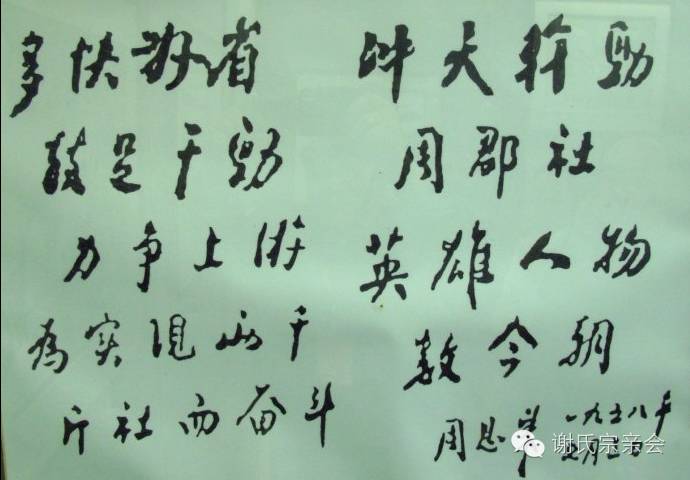 多快好省
鼓足干劲
力争上游
为实现两千
斤社而奋斗
冲天幹劲
周郡社
英雄人物
数今朝
周恩来
一九五八年
谢氏宗亲会